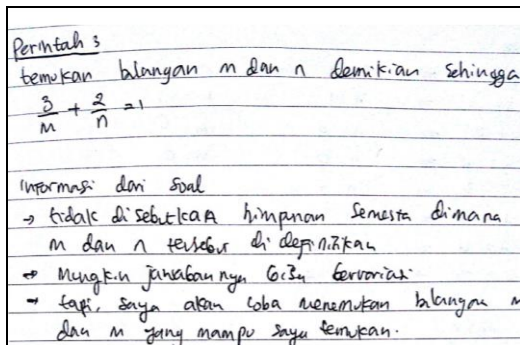 Perintah 3
temukan bilangan m dan n demikian sehingga
3/m + 2/n = 1
Informasi dari soal
→ tidak disebutkan himpunan semesta dimana
m dan n tersebut di definisikan
→ Mungkin jawabannya bisa bervariasi.
→ tapi, saya akan coba menemukan bilangan m
dan n yang mampu saya temukan.